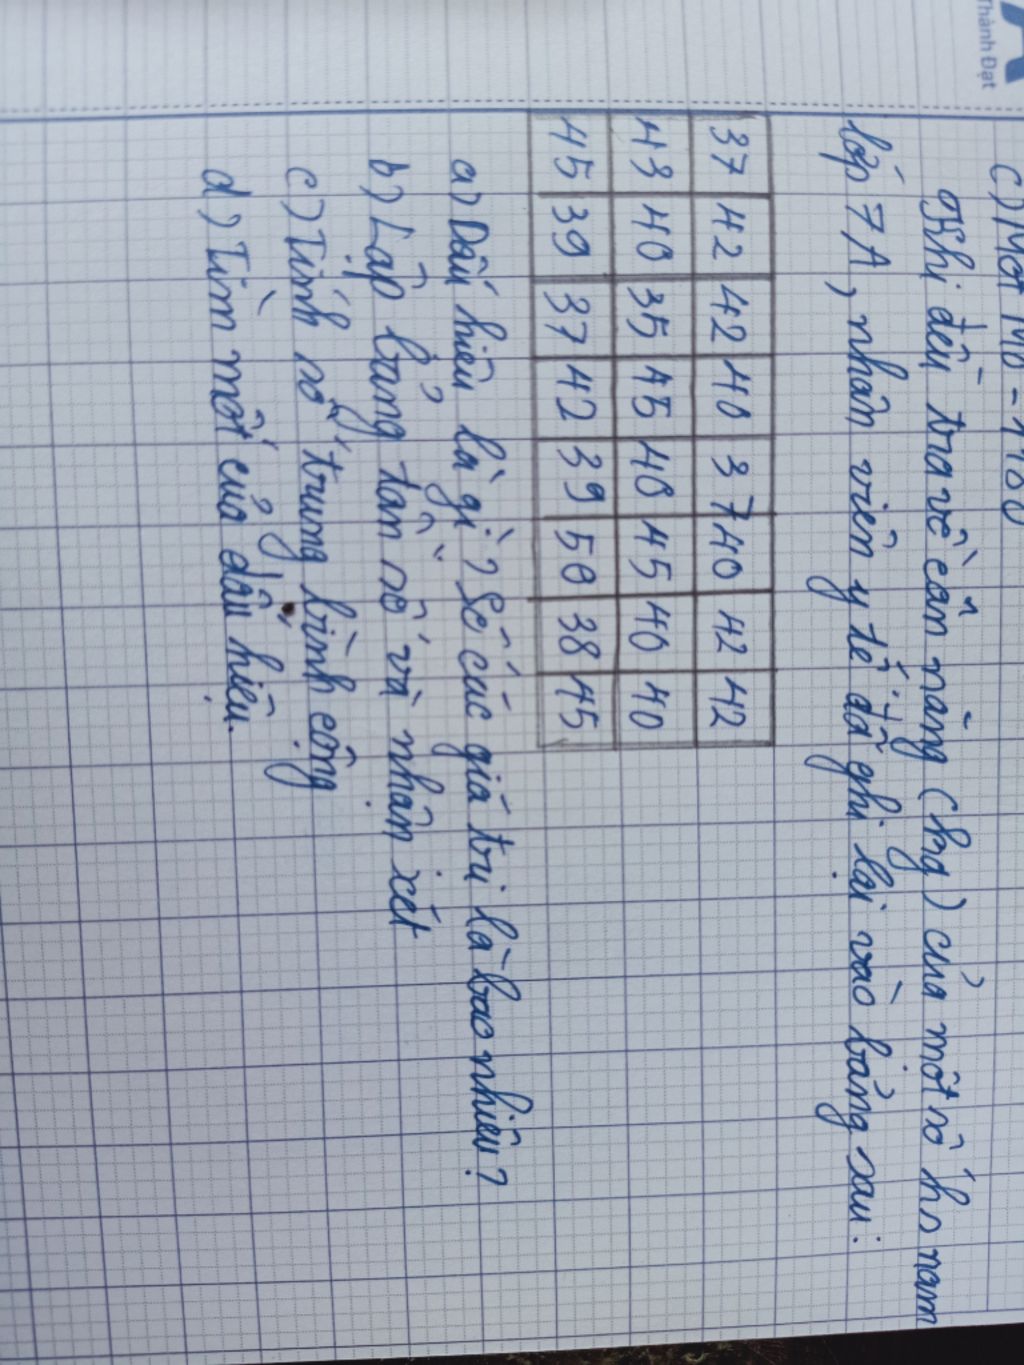 Thành Đạt
c) Mốt M0 = 1100
Khi điều tra về cân nặng (kg) của một số hs nam
lớp 7A, nhân viên y tế đã ghi lại vào bảng sau:
37 42 42 40 37 40 42 42
43 40 35 45 40 45 40 40
45 39 37 42 39 50 38 45
a) Dấu hiệu là gì? Số các giá trị là bao nhiêu?
b) Lập bảng tần số và nhận xét
c) Tính số trung bình cộng
d) Tìm mốt của dấu hiệu.